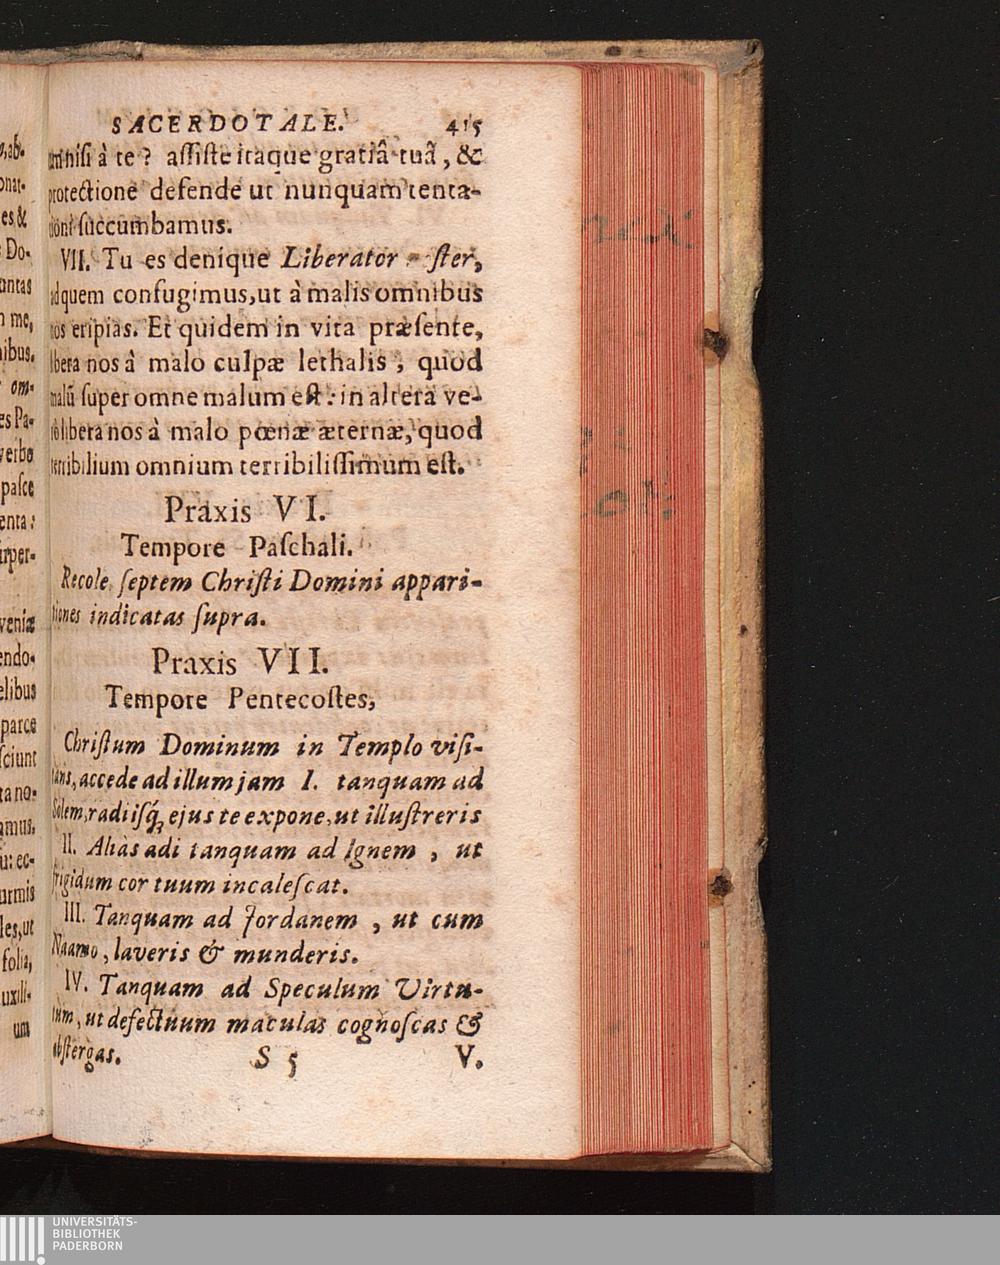 SACERDOTALE. 415
nisi à te? aſſiſte itaque gratiâ tuâ, &
protectione defende ut nunquam tenta-
tioni ſuccumbamus.
VII. Tu es denique Liberator ſter,
ad quem confugimus, ut à malis omnibus
nos eripias. Et quidem in vita præſente,
libera nos â malo culpæ lethalis, quod
malū ſuper omne malum eſt: in altera ve-
rò libera nos à malo pœnæ æternæ, quod
terribilium omnium terribiliſſimum eſt.
Praxis VI.
Tempore Paſchali.
Recole ſeptem Chriſti Domini appari-
tiones indicatas ſupra.
Praxis VII.
Tempore Pentecoſtes,
Chriſtum Dominum in Templo viſi-
tans, accede ad illum jam I. tanquam ad
Solem, radiiſq́, ejus te expone, ut illuſtreris
II. Aliàs adi tanquam ad Ignem, ut
frigidum cor tuum incaleſcat.
III. Tanquam ad Jordanem, ut cum
Naamo, laveris & munderis.
IV. Tanquam ad Speculum Virtu-
tum, ut defectuum maculas cognoſcas &
abſtergas. S 5 V.
UNIVERSITÄTS-
BIBLIOTHEK
PADERBORN